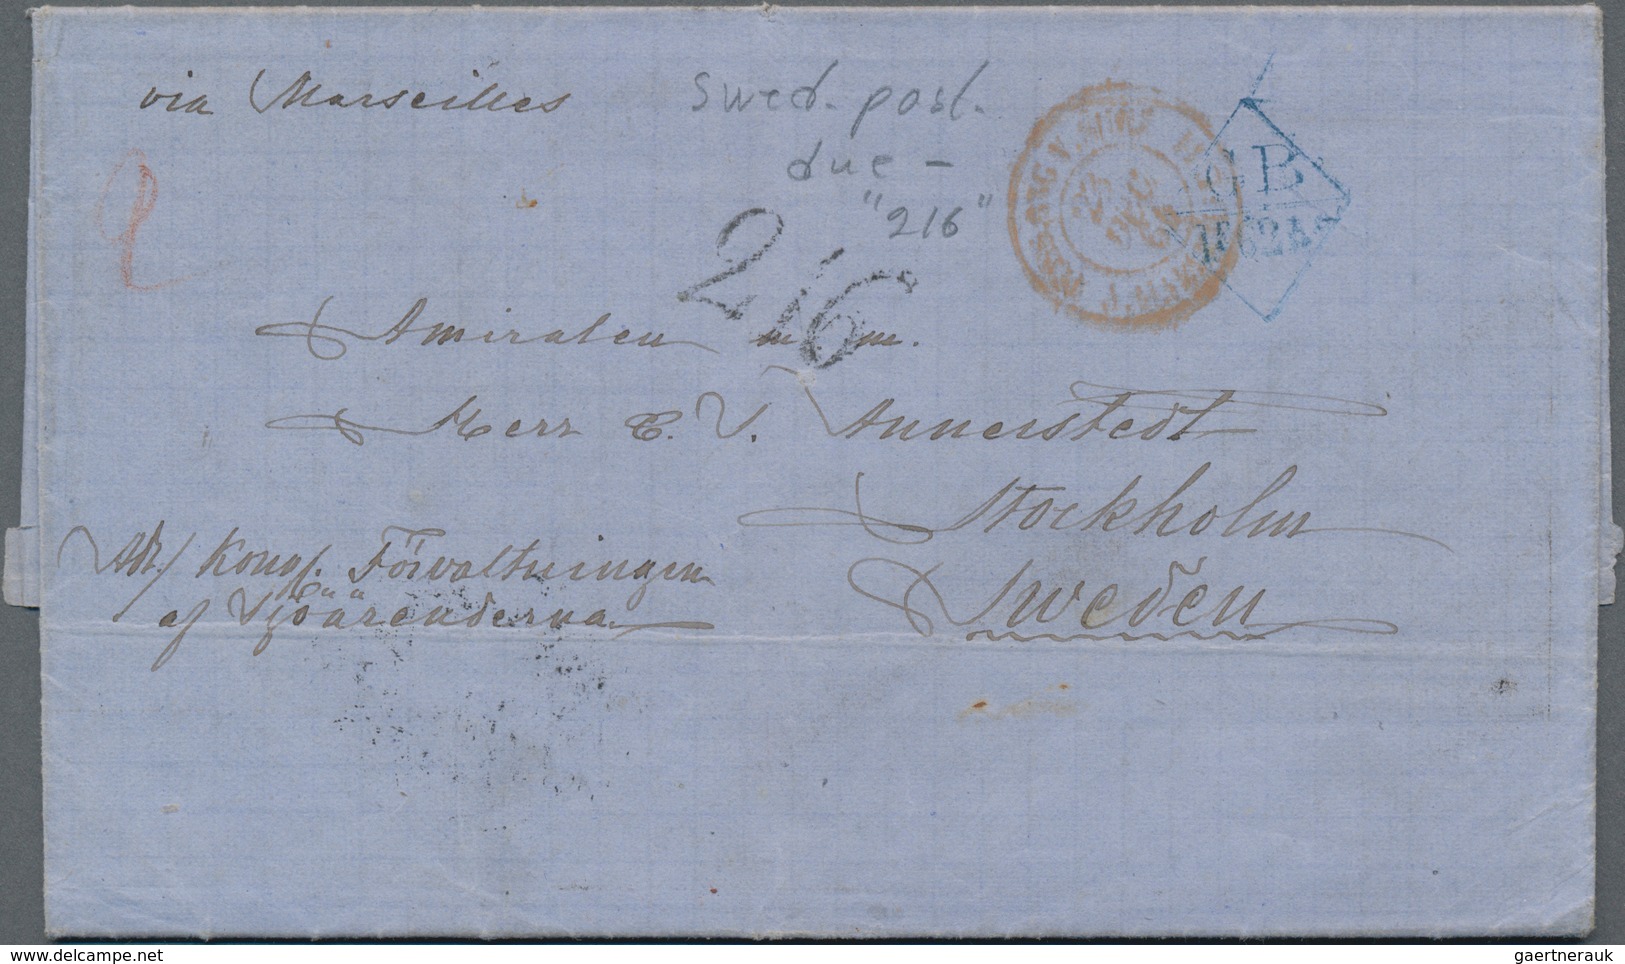 via Marseilles
Swed. post.
due —
"216"
216
GB
1F62
Amiralen m m.
Herr C. V. Annerstedt
Stockholm
Sweden
Adr/ Kongl. Förvaltningen
af Sjöärenderna
gaertnerauk